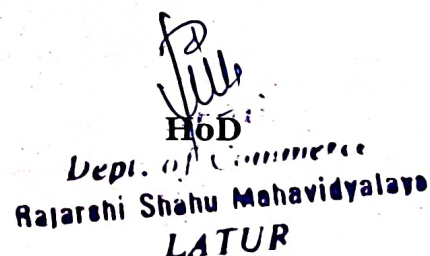 HoD
Dept. of Commerce
Rajarshi Shahu Mahavidyalaya
LATUR